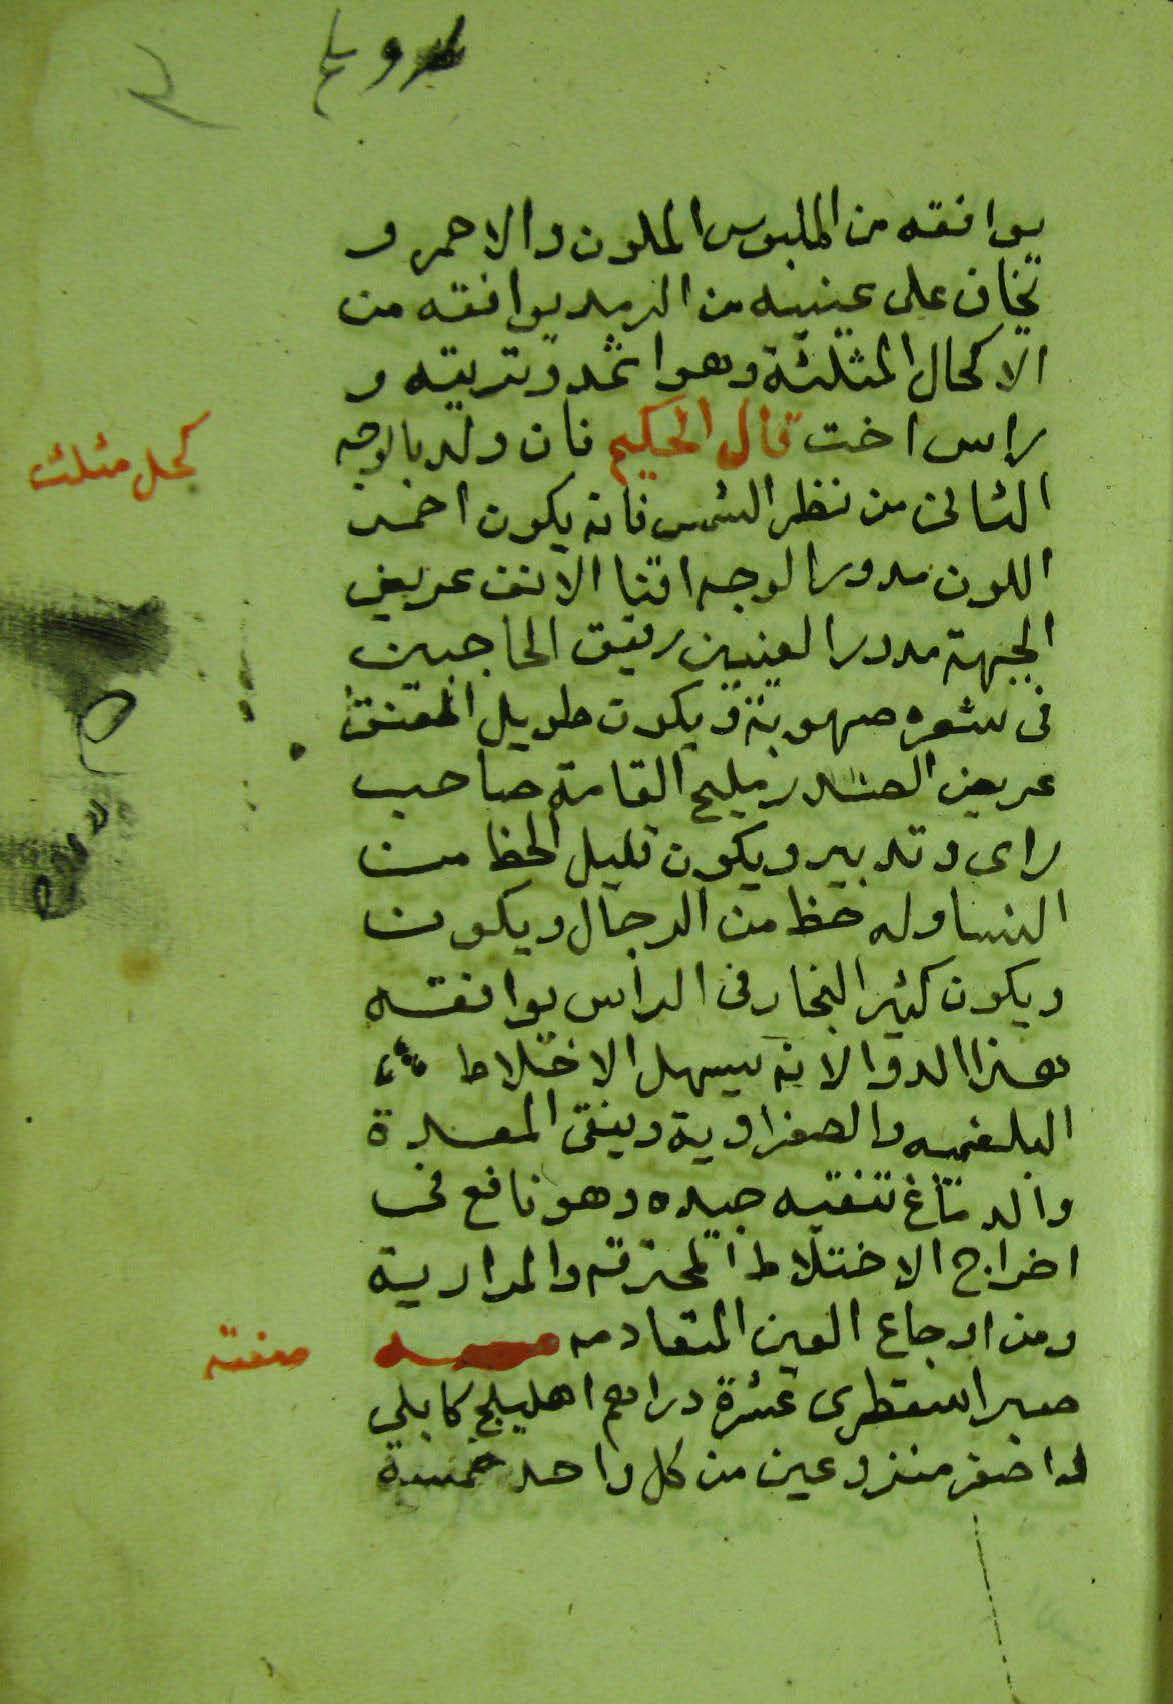 يوافقه من الملبوس الملون والاحمر و
تخاف على عينيه من الرمد يوافقه من
الاكحال المثلثة وهو اثمد وتربته و
راس اخت قال الحكيم فان ولد بالوجه
كحل مثلث
الثانى من نظر الشمس فانه يكون احمر
اللون مدور الوجه اقنا الانف عريض
الجبهة مدور العينين رقيق الحاجبين
فى شعره صهوبة ويكون طويل العنق
عريض الصدر مليح القامة صاحب
راى وتدبير ويكون قليل الحظ من
النسا وله حظ من الرجال ويكون
ويكون كثير البخار فى الرأس يوافقه
هذا الدوا لانه يسهل الاختلاط
البلغميه والصفراوية وينقى المعدة
والدماغ تنقيه جيده وهو نافع فى
اخراج الاختلاط المحترقه والمرارية
ومن اوجاع العين المتقادمه
صفته
صبر اسقطرى عشرة دراهم اهليلج كابلي
واصفر منزوعين من كل واحد خمسة